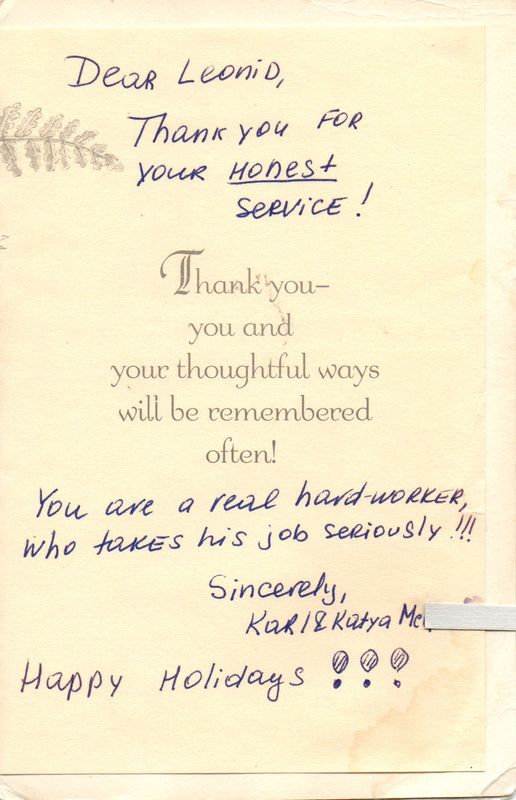 Dear Leonid,
Thank you for
your honest
service!
Thank you–
you and
your thoughtful ways
will be remembered
often!
You are a real hard-worker,
who takes his job seriously!!!
Sincerely,
Karl & Katya
Happy Holidays !!!